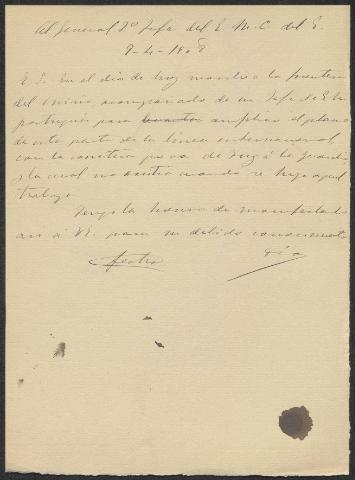 Al General 2º Jefe del E. M. C. del E.
9-4-1908
E. S. En el día de hoy marcho a la frontera
del Miño acompañado de un Jefe de E. M.
portugués para levantar ampliar el plano
de esta parte de la línea internacional,
con la carretera que va de Tuy á la Guardia
y la cual no existía cuando se hizo aquel
trabajo.
Tengo la honra de manifestarlo
así á VE. para su debido conocimiento
fecha